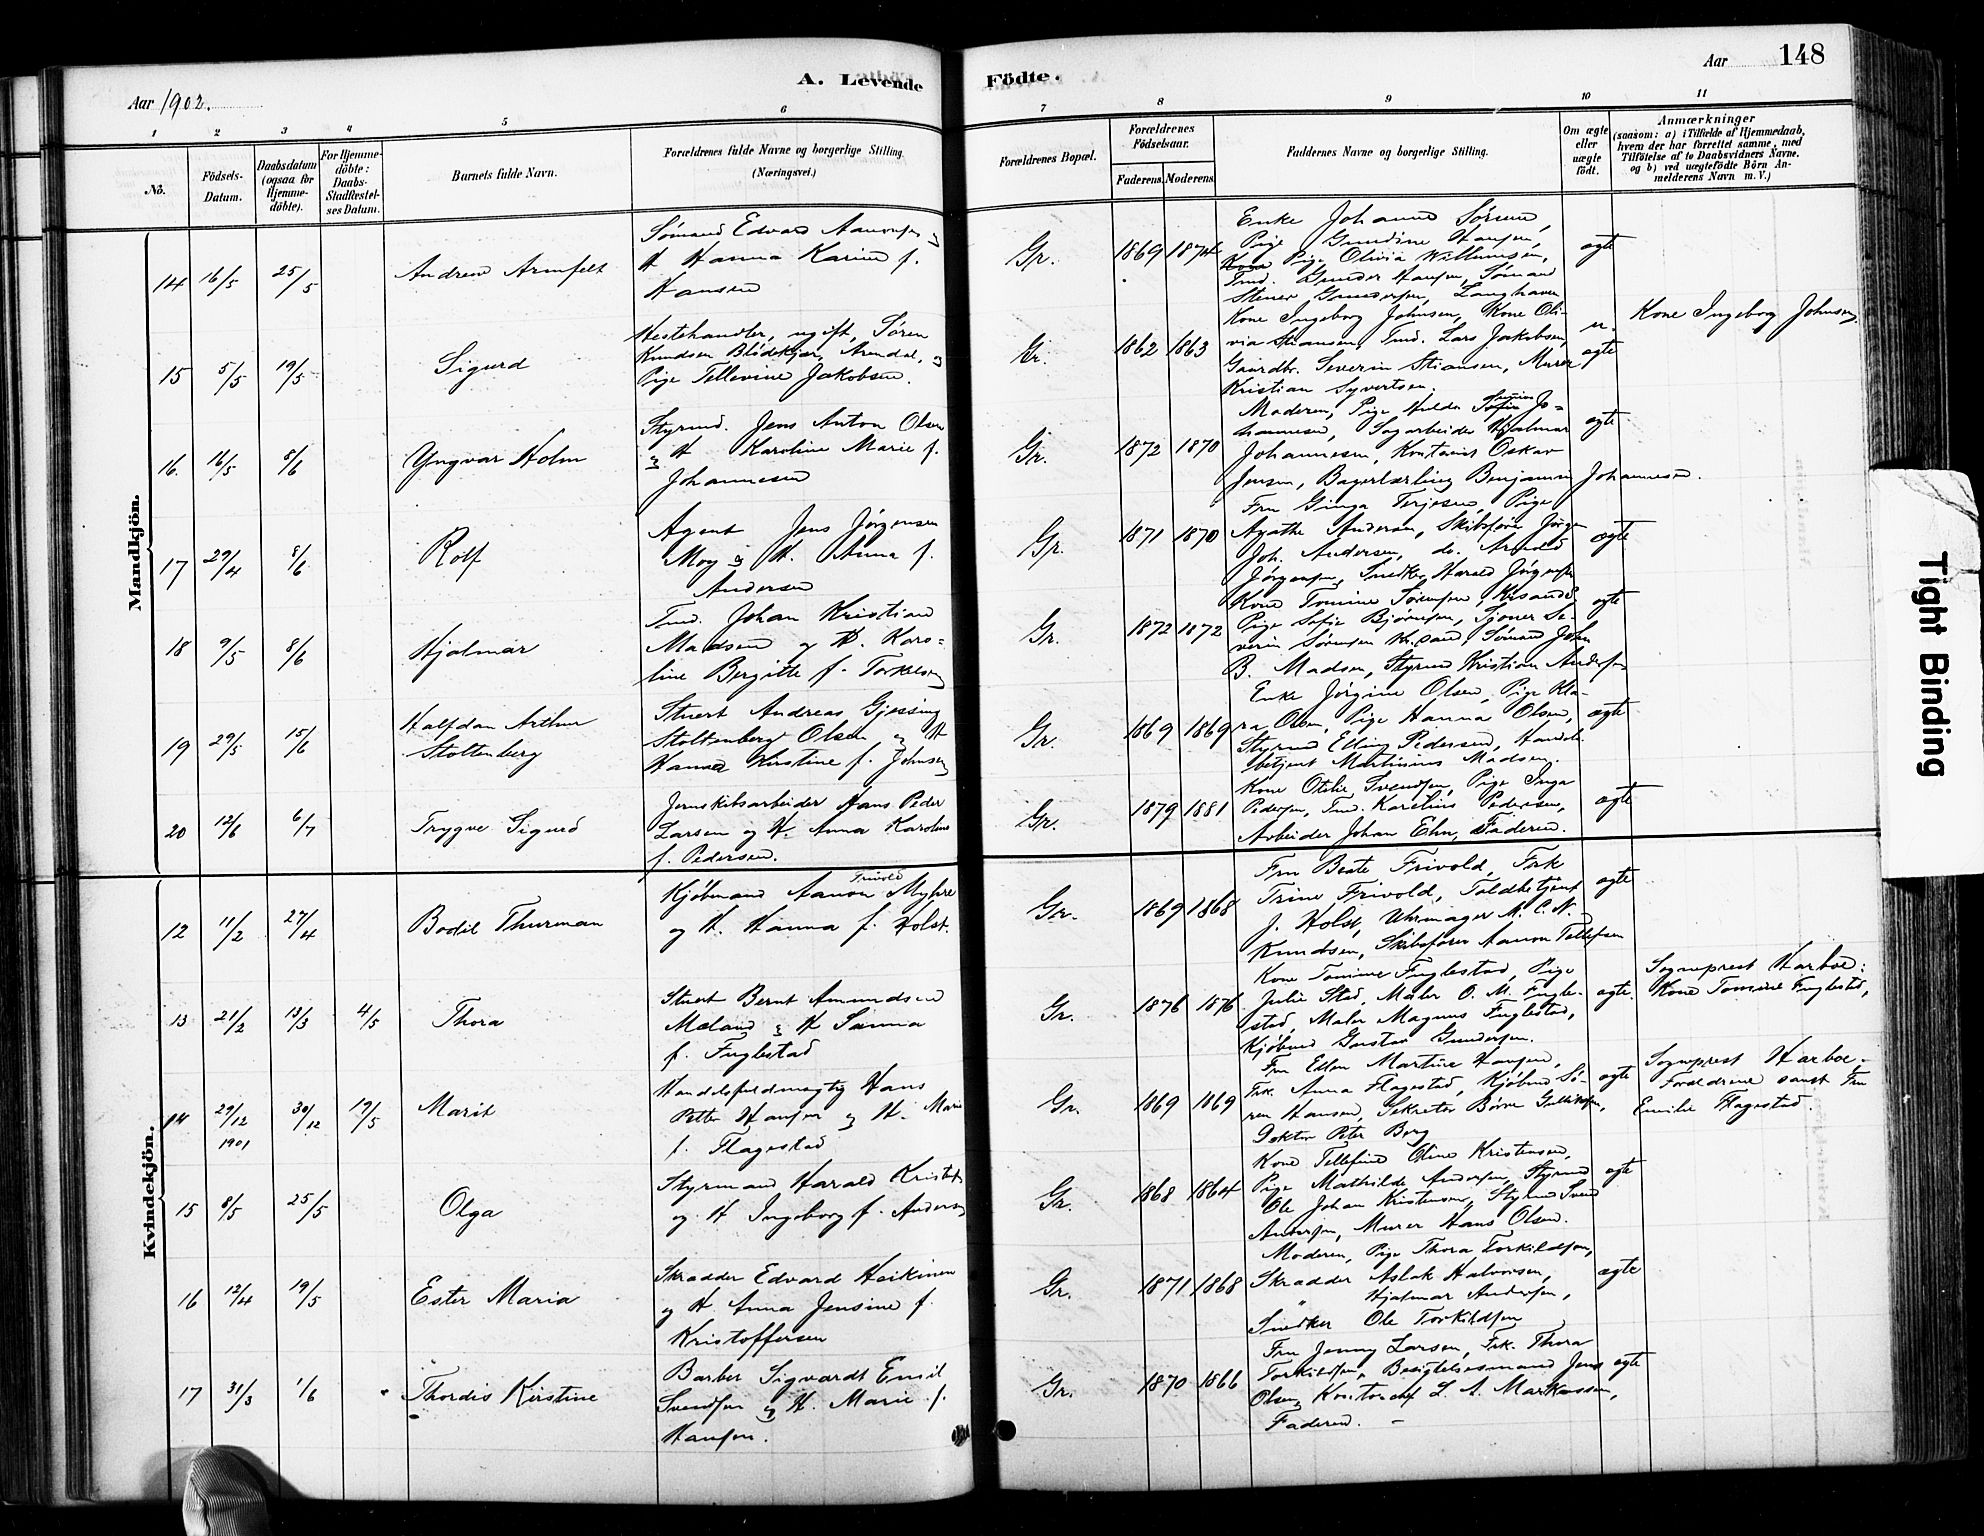 A. Levende
Födte.
Aar 1902.
Aar 148
1 2 3 4 5 6 7 8 9 10 11
No.
Födsels-
Datum.
Daabsdatum
(ogsaa for
Hjemme-
döbte).
For Hjemme-
döbte:
Daabs-
Stadfæstel-
ses Datum.
Barnets fulde Navn.
Forældrenes fulde Navne og borgerlige Stilling.
(Næringsvei.)
Forældrenes Bopæl.
Forældrenes
Födselsaar.
Faderens. Moderens.
Faddernes Navne og borgerlige Stilling.
Om ægte
eller
uægte
født.
Anmærkninger
(saasom: a) i Tilfælde af Hjemmedaab,
hvem der har forrettet samme, med
Tilföielse af to Daabsvidners Navne,
og b) ved uægtefödte Börn An-
melderens Navn m. V.)
Mandkjön.
14 16/5 25/5 Andreas Armfelt
Sømand Edvard Aanonsen og
H Hanna Karine f.
Hansen
Gr. 1869 1874
Enke Johanne Sørsen,
Pige Gundine Hansen,
Pige Olivia Willumsen,
Tmd. Gunder Hansen, Sømand
Stener Gundersen, Langhaven
ægte
15 5/5 19/5 Sigurd
Hestehandler, ugift, Søren
Knudsen Blödekjær, Arendal, og
Pige Tellevine Jakobsen.
Gr. 1862 1863
Kone Ingeborg Johnsen, Kone Oli-
via Stiansen, Tmd. Lars Jakobsen,
Gaardbr. Severin Stiansen, Murer
Kristian Syvertsen.
u.
ægte
Kone Ingeborg Johnsen,
16. 16/5 8/6 Yngvar Holm
Styrmd. Jens Anton Olsen
og H Karoline Marie f.
Johannesen
Gr. 1872 1870
Moderen, Pige Hulda Sofie Jo-
hannesen, Sagarbeider Hjalmar
Johannesen, Kontorist Oskar
Jensen, Bagerlærling Benjamin Johannesen.
ægte
17 29/4 8/6 Rolf
Agent Jens Jörgensen
Moy og H. Anna f.
Andersen
Gr. 1871 1870
Fru Ginga Terjesen, Pige
Agathe Andersen, Skibsförer Jörgen
Joh. Andersen, do. Arnold
Jörgensen, Snedker Harald Jörgensen
ægte
18 9/5 8/6 Hjalmar
Tmd. Johan Kristian
Madsen og H. Karo-
line Bergitte f. Torkelsen
Gr. 1872 1872
Kone Tomine Sørensen, Krsand.
Pige Sofie Bjørnsen, Tjener Se-
verin Sørensen Kr.sand, Sømand John
B. Madsen, Styrmd Kristian Andersen
ægte
19 29/5 15/6 Halfdan Arthur
Stoltenberg
Stuert Andreas Gjessing
Stoltenberg Olsen og H
Hanna Kirstine f. Johnsen
Gr. 1869 1869
Enke Jörgine Olsen, Pige Kla-
ra Olsen, Pige Hanna Olsen,
Styrmd Elling Pedersen, Handels-
betjent Martinius Madsen.
ægte
20 12/6 6/7 Trygve Sigurd
Jernskibsarbeider Hans Peder
Larsen og H. Anna Karoline
f. Pedersen.
Gr. 1879 1881
Kone Otilie Svendsen, Pige Inga
Pedersen, Tmd. Karelius Pedersen,
Arbeider Johan Ehn, Faderen.
ægte
Kvindekjön.
12 11/2 27/4 Bodil Thurman
Kjöbmand Aanon Frivold Myhre
og H. Hanna f. Holst.
Gr. 1869 1868
Fru Beate Frivold, Frk
Trine Frivold, Toldbetjent
J. Holst, Uhrmager M. C. N.
Knudsen, Skibsfører Aanon Tellefsen
ægte
13 21/2 13/3 4/5 Thora
Stuert Bernt Amundsen
Mæland og H Sanna
f. Fuglestad
Gr. 1876 1876
Kone Tomine Fuglestad, Pige
Julie Stad, Maler O. M. Fugle-
stad, Maler Magnus Fuglestad,
Kjöbmd Gustav Gundersen.
ægte.
Sogneprest Harboe:
Kone Tomine Fuglestad,
14 29/12 1901 30/12 19/5 Marit
Handelsfuldmægtig Hans
Petter Hansen og H. Marie
f. Flagestad
Gr. 1869 1869
Fru Ellen Martine Hansen,
Frk. Anna Flagestad, Kjöbmd Sö-
ren Hansen, Sekretær Börre Gullichsen,
Doktor Peter Borg
ægte
Sogneprest Harboe.
Forældrene samt Fru
Emilie Flagestad.
15 8/5 25/5 Olga
Styrmand Harald Kristens
og H Ingeborg f. Andersen
Gr. 1868 1864
Kone Tellefine Oline Kristensen,
Pige Mathilde Andersen, Styrmd
Ole Johan Kristensen, Styrmd Svend
Andersen, Murer Hans Olsen.
ægte
16 12/4 19/5 Ester Maria
Skrædder Edvard Heikinen
og H. Anna Jensine f.
Kristoffersen
Gr. 1871 1868
Moderen, Pige Thora Torkildsen,
Skrædder Aslak Halvorsen,
" Hjalmar Andersen,
Snedker Ole Torkildsen
ægte
17 31/3 1/6 Thordis Kirstine
Barber Sigvardt Emil
Svendsen og H. Marie f.
Hansen.
Gr. 1870 1866
Fru Jenny Larsen, Frk. Thora
Torkildsen, Besigtelsesmand Jens
Olsen, Kontorchef L. A. Markussen,
Faderen.
ægte
Tight Binding